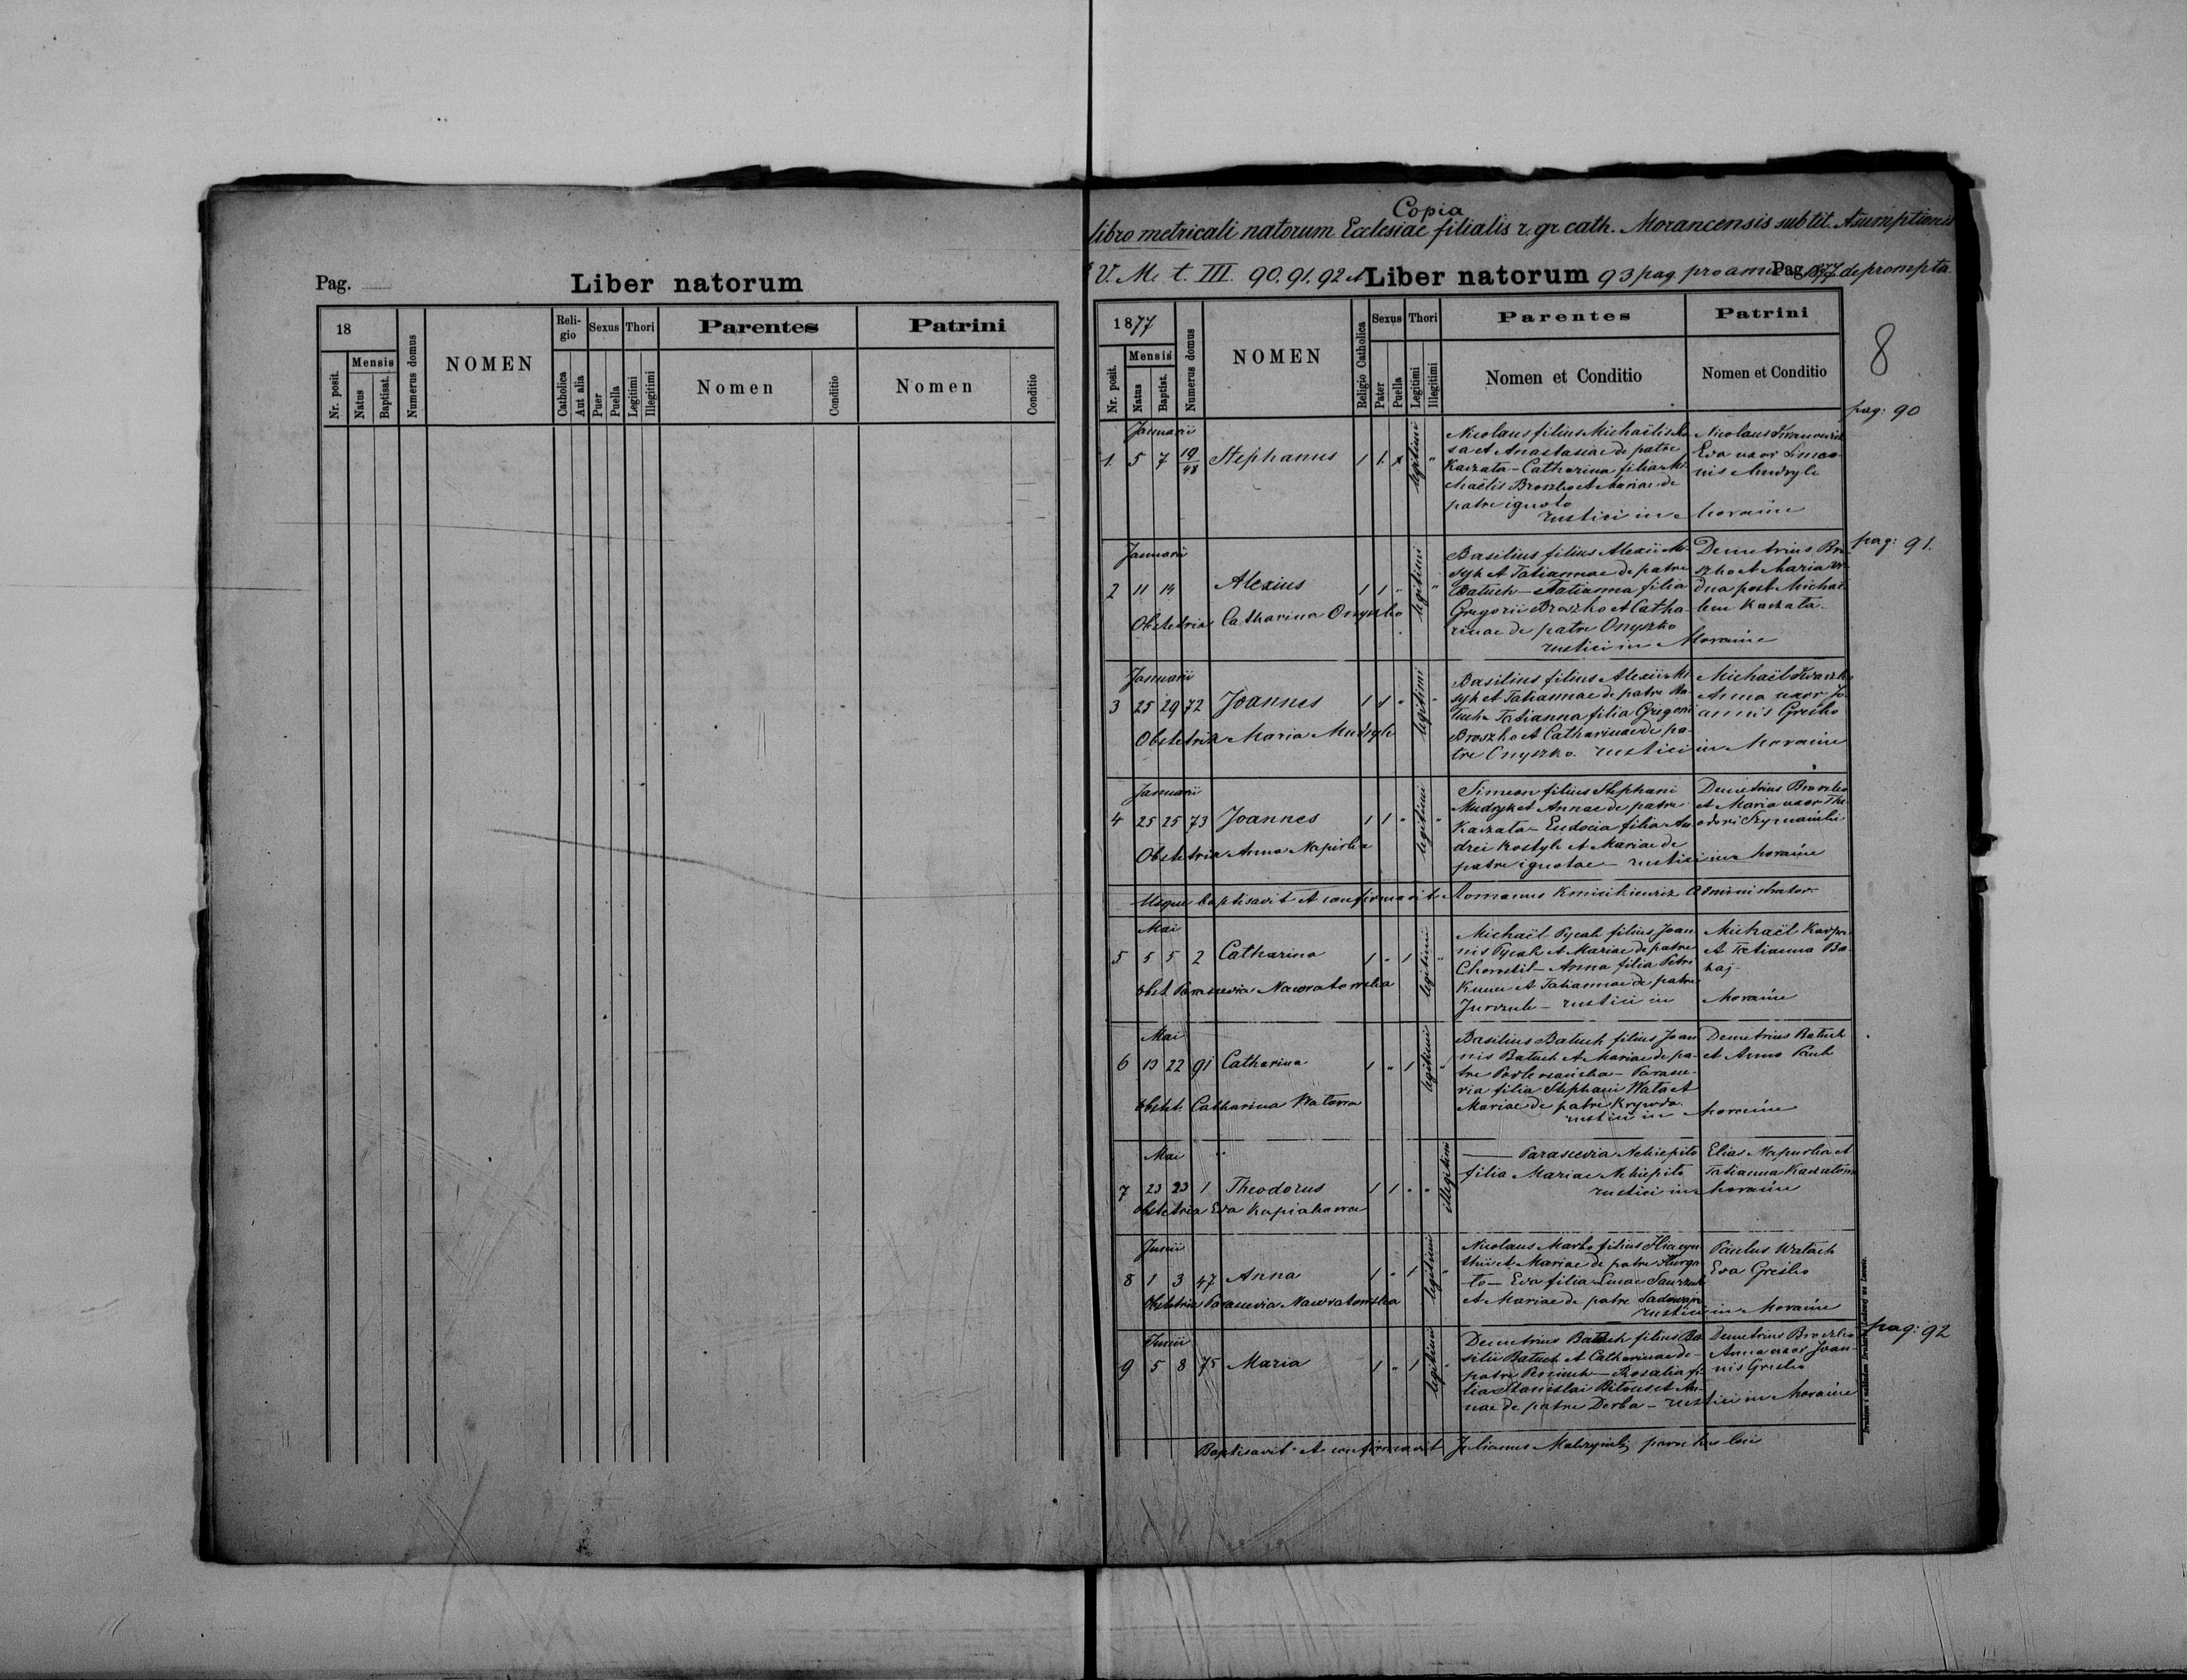 Pag.
Liber natorum
18
Mensis
Nr. posit.
Natus
Baptisat.
Numerus domus
NOMEN
Reli-
gio
Catholica
Aut alia
Sexus
Puer
Puella
Thori
Legitimi
Illegitimi
Parentes
Nomen
Conditio
Patrini
Nomen
Conditio
Copia
libro metricali natorum Ecclesiae filialis r. gr. cath. Morancensis sub tit. Assumptionis
V. M. t. III. 90, 91, 92 et Liber natorum 93 pag. pro anno Pag. 1877 deprompta
8
1877
Mensis
Nr. posit.
Natus
Baptist.
Numerus domus
NOMEN
Religio Catholica
Sexus
Pater
Puella
Thori
Legitimi
Illegitimi
Parentes
Nomen et Conditio
Patrini
Nomen et Conditio
pag: 90
Januarii
1. 5 7 19/48 Stephanus 1 1 legitimi "
Nicolaus filius Michaëlis
sa et Anastasiae de patre
Kaczała - Catharina filia Mi-
chaëlis Broszko et Mariae de
patre ignoto
rustici in Moraine
Nicolaus
Eva uxor Simeo-
nis Mudryk
pag: 91.
Januarii
2 11 14 Alexius 1 1 " legitimi "
Obstetrix Catharina Onyszko
Basilius filius Alexii
et Tatiannae de patre
Batuch - Tatianna filia
Gregorii Broszko et Catha-
rinae de patre Onyszko
rustici in Moraine
Demetrius Bro-
szko et Maria vi-
dua post Michaë-
lem Kaczała.
Januarii
3 25 29 72 Joannes 1 1 " legitimi "
Obstetrix Maria Mudryk
Basilius filius Alexii
et Tatiannae de patre Ba-
tuch - Tatianna filia Gregorii
Broszko et Catharinae de pa-
tre Onyszko. rustici in Moraine
Michaël
Anna uxor Jo-
annis Greśko
Januarii
4 25 25 73 Joannes 1 1 " legitimi "
Obstetrix Anna Napirka
Simeon filius Stephani
Mudryk et Annae de patre
Kaczała - Eudocia filia An-
drei Kostyk et Mariae de
patre ignotae - rustici in Moraine
Demetrius Broszko
et Maria uxor The-
odori Szymański
Usque baptisavit et confirmavit Romanus Kmicikiewicz Administrator
Mai
5 5 5 2 Catharina 1 " 1 legitimi "
obst. Parascevia Nawratowska
Michaël Pycak filius Joan-
nis Pycak et Mariae de patre
- Anna filia Petri
et Tatiannae de patre
- rustici in Moraine
Michaël
et Tatianna
Mai
6 19 22 91 Catharina 1 " 1 legitimi "
obstet. Catharina
Basilius Batuch filius Joan-
nis Batuch et Mariae de pa-
tre - Parasce-
via filia Stephani et
Mariae de patre Krywda
rustici in Moraine
Demetrius Batuch
et Anna
Mai
7 23 23 1 Theodorus 1 1 " " illegitimi
obstetrix Eva
Parascevia
filia Mariae
rustici in Moraine
Elias Napirka et
Tatianna
Junii
8 1 3 47 Anna 1 " 1 legitimi "
Obstetrix Parascevia Nawratowska
Nicolaus filius Hiacyn-
thi et Mariae de patre
- Eva filia Lucae
et Mariae de patre
rustici in Moraine
Paulus
Eva Greśko
pag: 92
Junii
9 5 8 75 Maria 1 " 1 legitimi "
Demetrius Batuch filius Ba-
silii Batuch et Catharinae de
patre - Rosalia fi-
lia Stanislai et An-
nae de patre Derba - rustici in Moraine
Demetrius Broszko
Anna uxor Joan-
nis Greśko
Baptisavit et confirmavit Julianus parochus loci